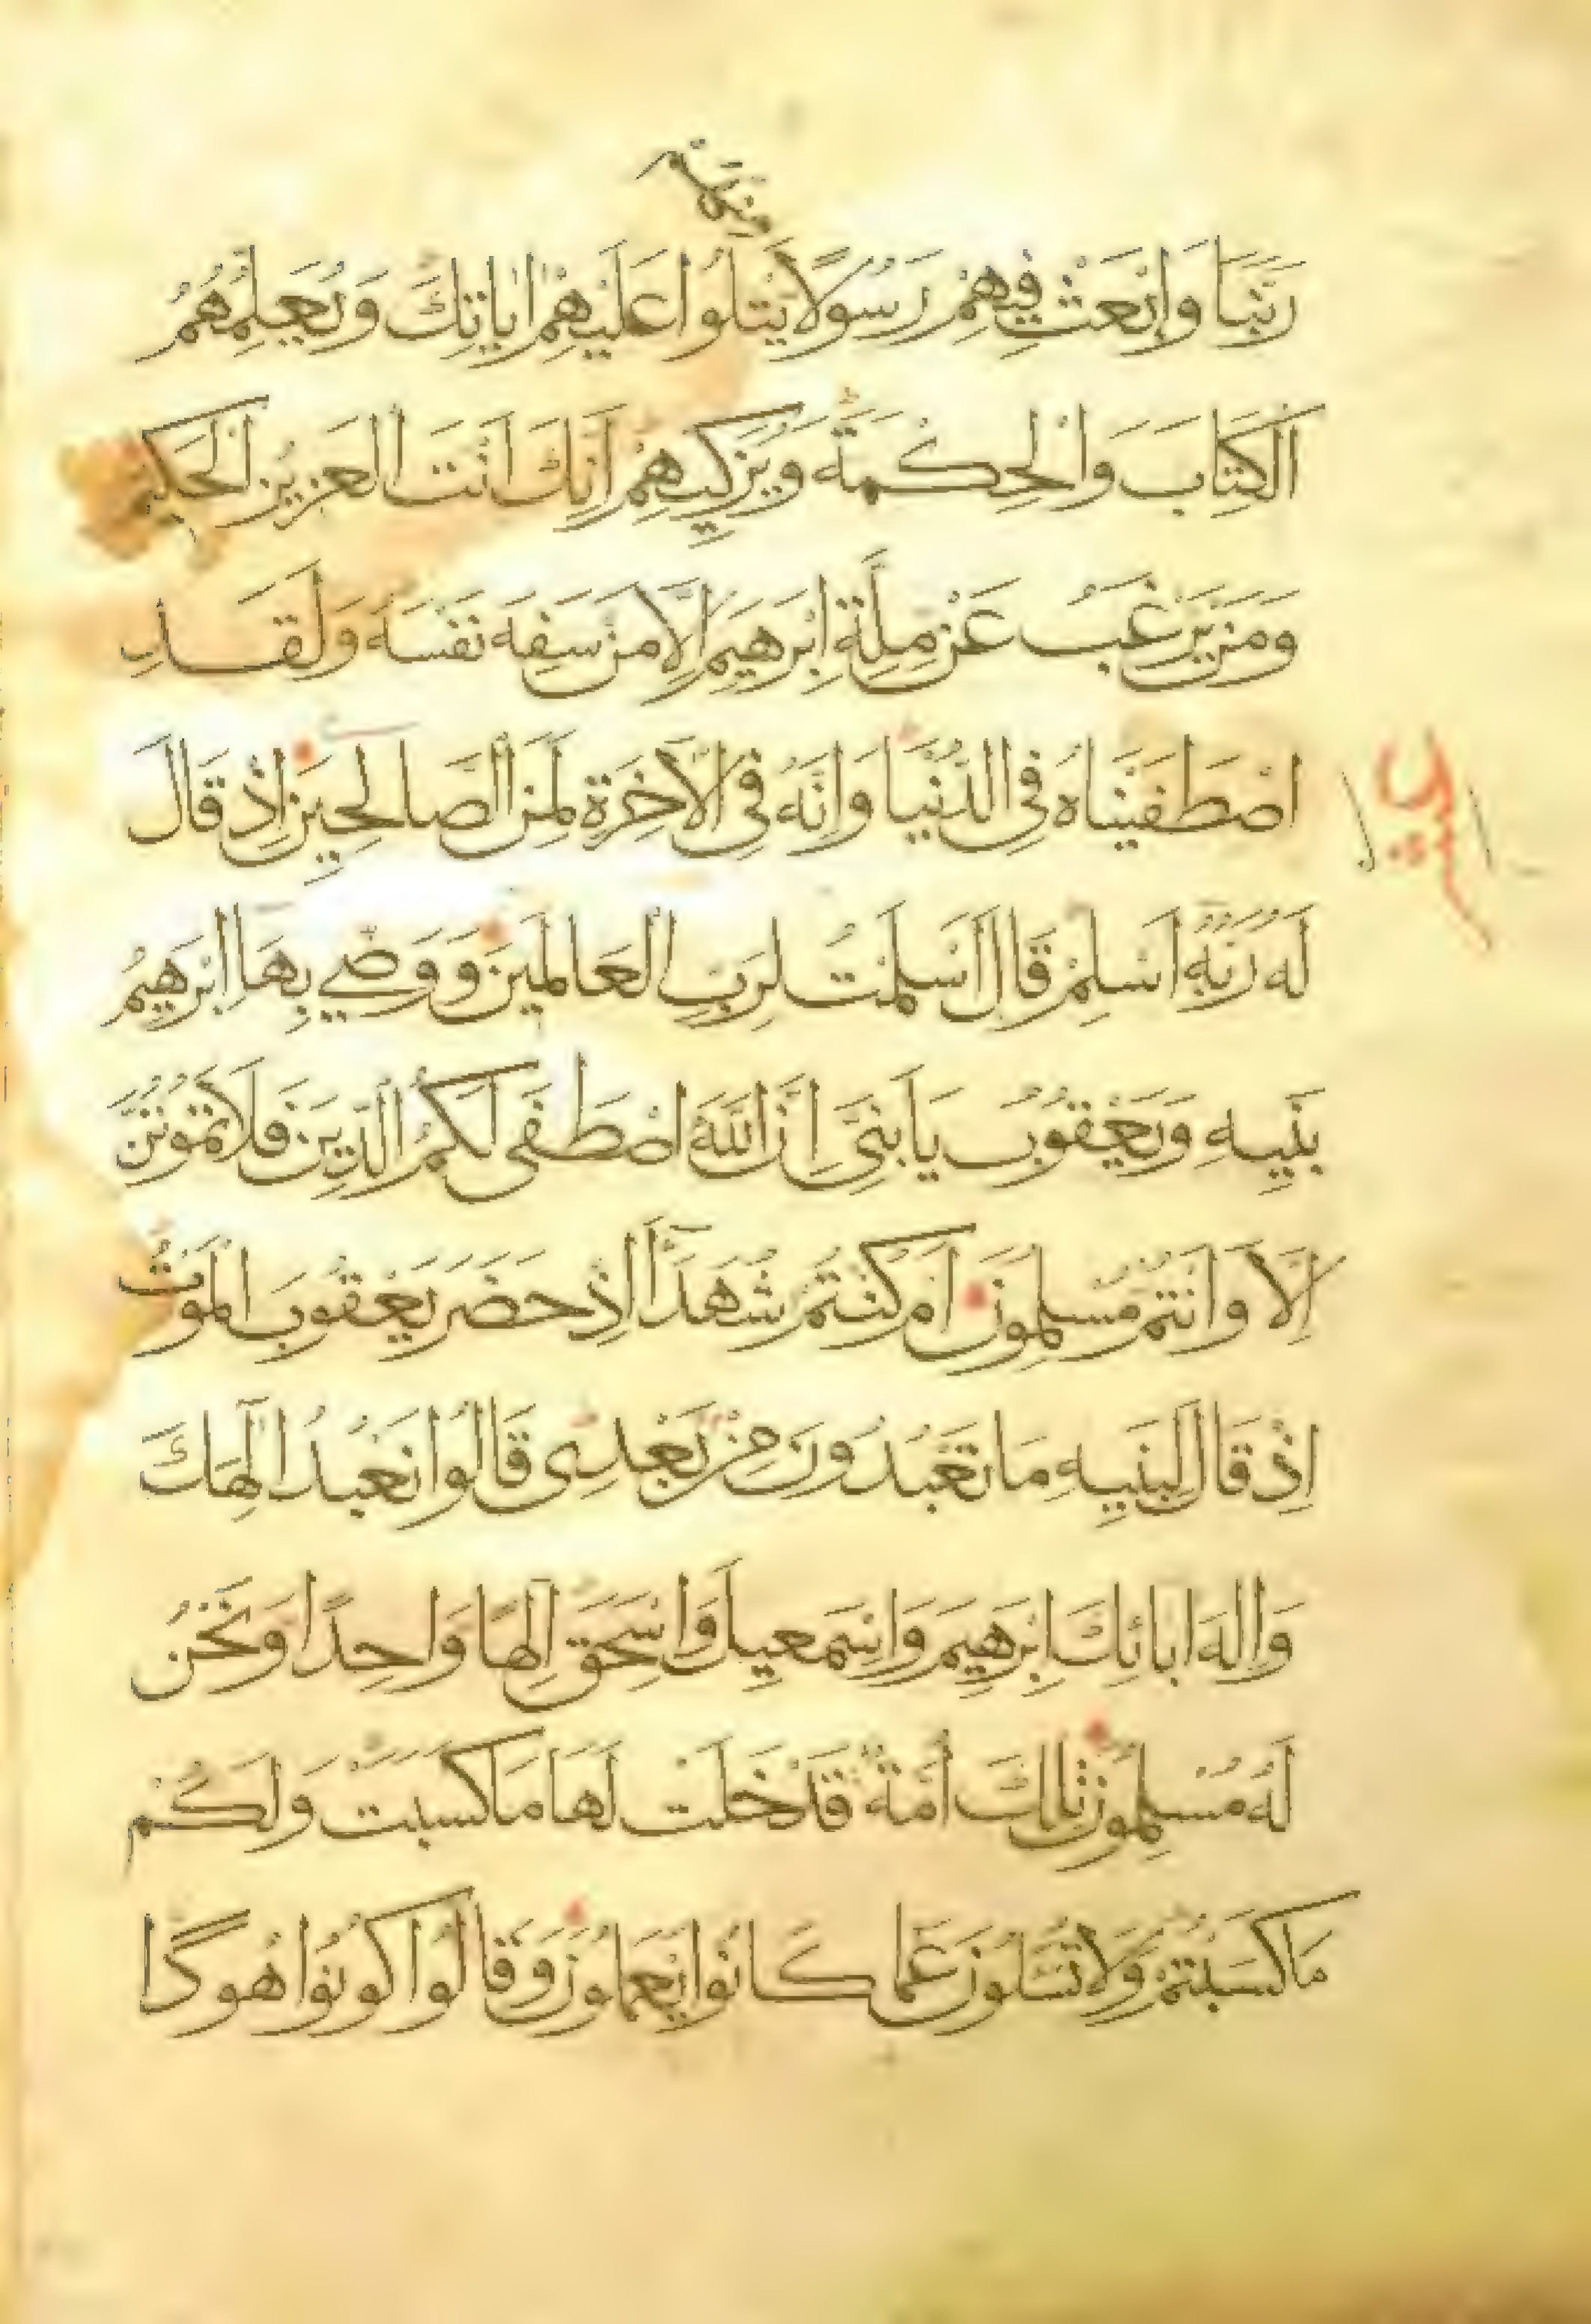 مِنْهُمْ
رَبَّنَا وَابْعَثْ فِيهِمْ رَسُولًا يَتْلُوا عَلَيْهِمْ اٰيَاتِكَ وَيُعَلِّمُهُمُ
الْكِتَابَ وَالْحِكْمَةَ وَيُزَكِّيهِمْ اِنَّكَ اَنْتَ الْعَزِيزُ الْحَكِيمُ
وَمَنْ يَرْغَبُ عَنْ مِلَّةِ اِبْرَهِيمَ اِلَّا مَنْ سَفِهَ نَفْسَهُ وَلَقَدِ
اصْطَفَيْنَاهُ فِي الدُّنْيَا وَاِنَّهُ فِي الْاٰخِرَةِ لَمِنَ الصَّالِحِينَ اِذْ قَالَ
لَهُ رَبُّهُ اَسْلِمْ قَالَ اَسْلَمْتُ لِرَبِّ الْعَالَمِينَ وَوَصَّي بِهَا اِبْرَهِيمُ
بَنِيهِ وَيَعْقُوبُ يَا بَنِيَّ اِنَّ اللّٰهَ اصْطَفَى لَكُمُ الدِّينَ فَلَا تَمُوتُنَّ
اِلَّا وَاَنْتُمْ مُسْلِمُونَ اَمْ كُنْتُمْ شُهَدَآءَ اِذْ حَضَرَ يَعْقُوبَ الْمَوْتُ
اِذْ قَالَ لِبَنِيهِ مَا تَعْبُدُونَ مِنْ بَعْدِى قَالُوا نَعْبُدُ اِلٰهَكَ
وَاِلٰهَ اٰبَائِكَ اِبْرَهِيمَ وَاِسْمَعِيلَ وَاِسْحَقَ اِلٰهًا وَاحِدًا وَنَحْنُ
لَهُ مُسْلِمُونَ تِلْكَ اُمَّةٌ قَدْ خَلَتْ لَهَا مَا كَسَبَتْ وَلَكُمْ
مَا كَسَبْتُمْ وَلَا تُسْـَٔلُونَ عَمَّا كَانُوا يَعْمَلُونَ وَقَالُوا كُونُوا هُودًا